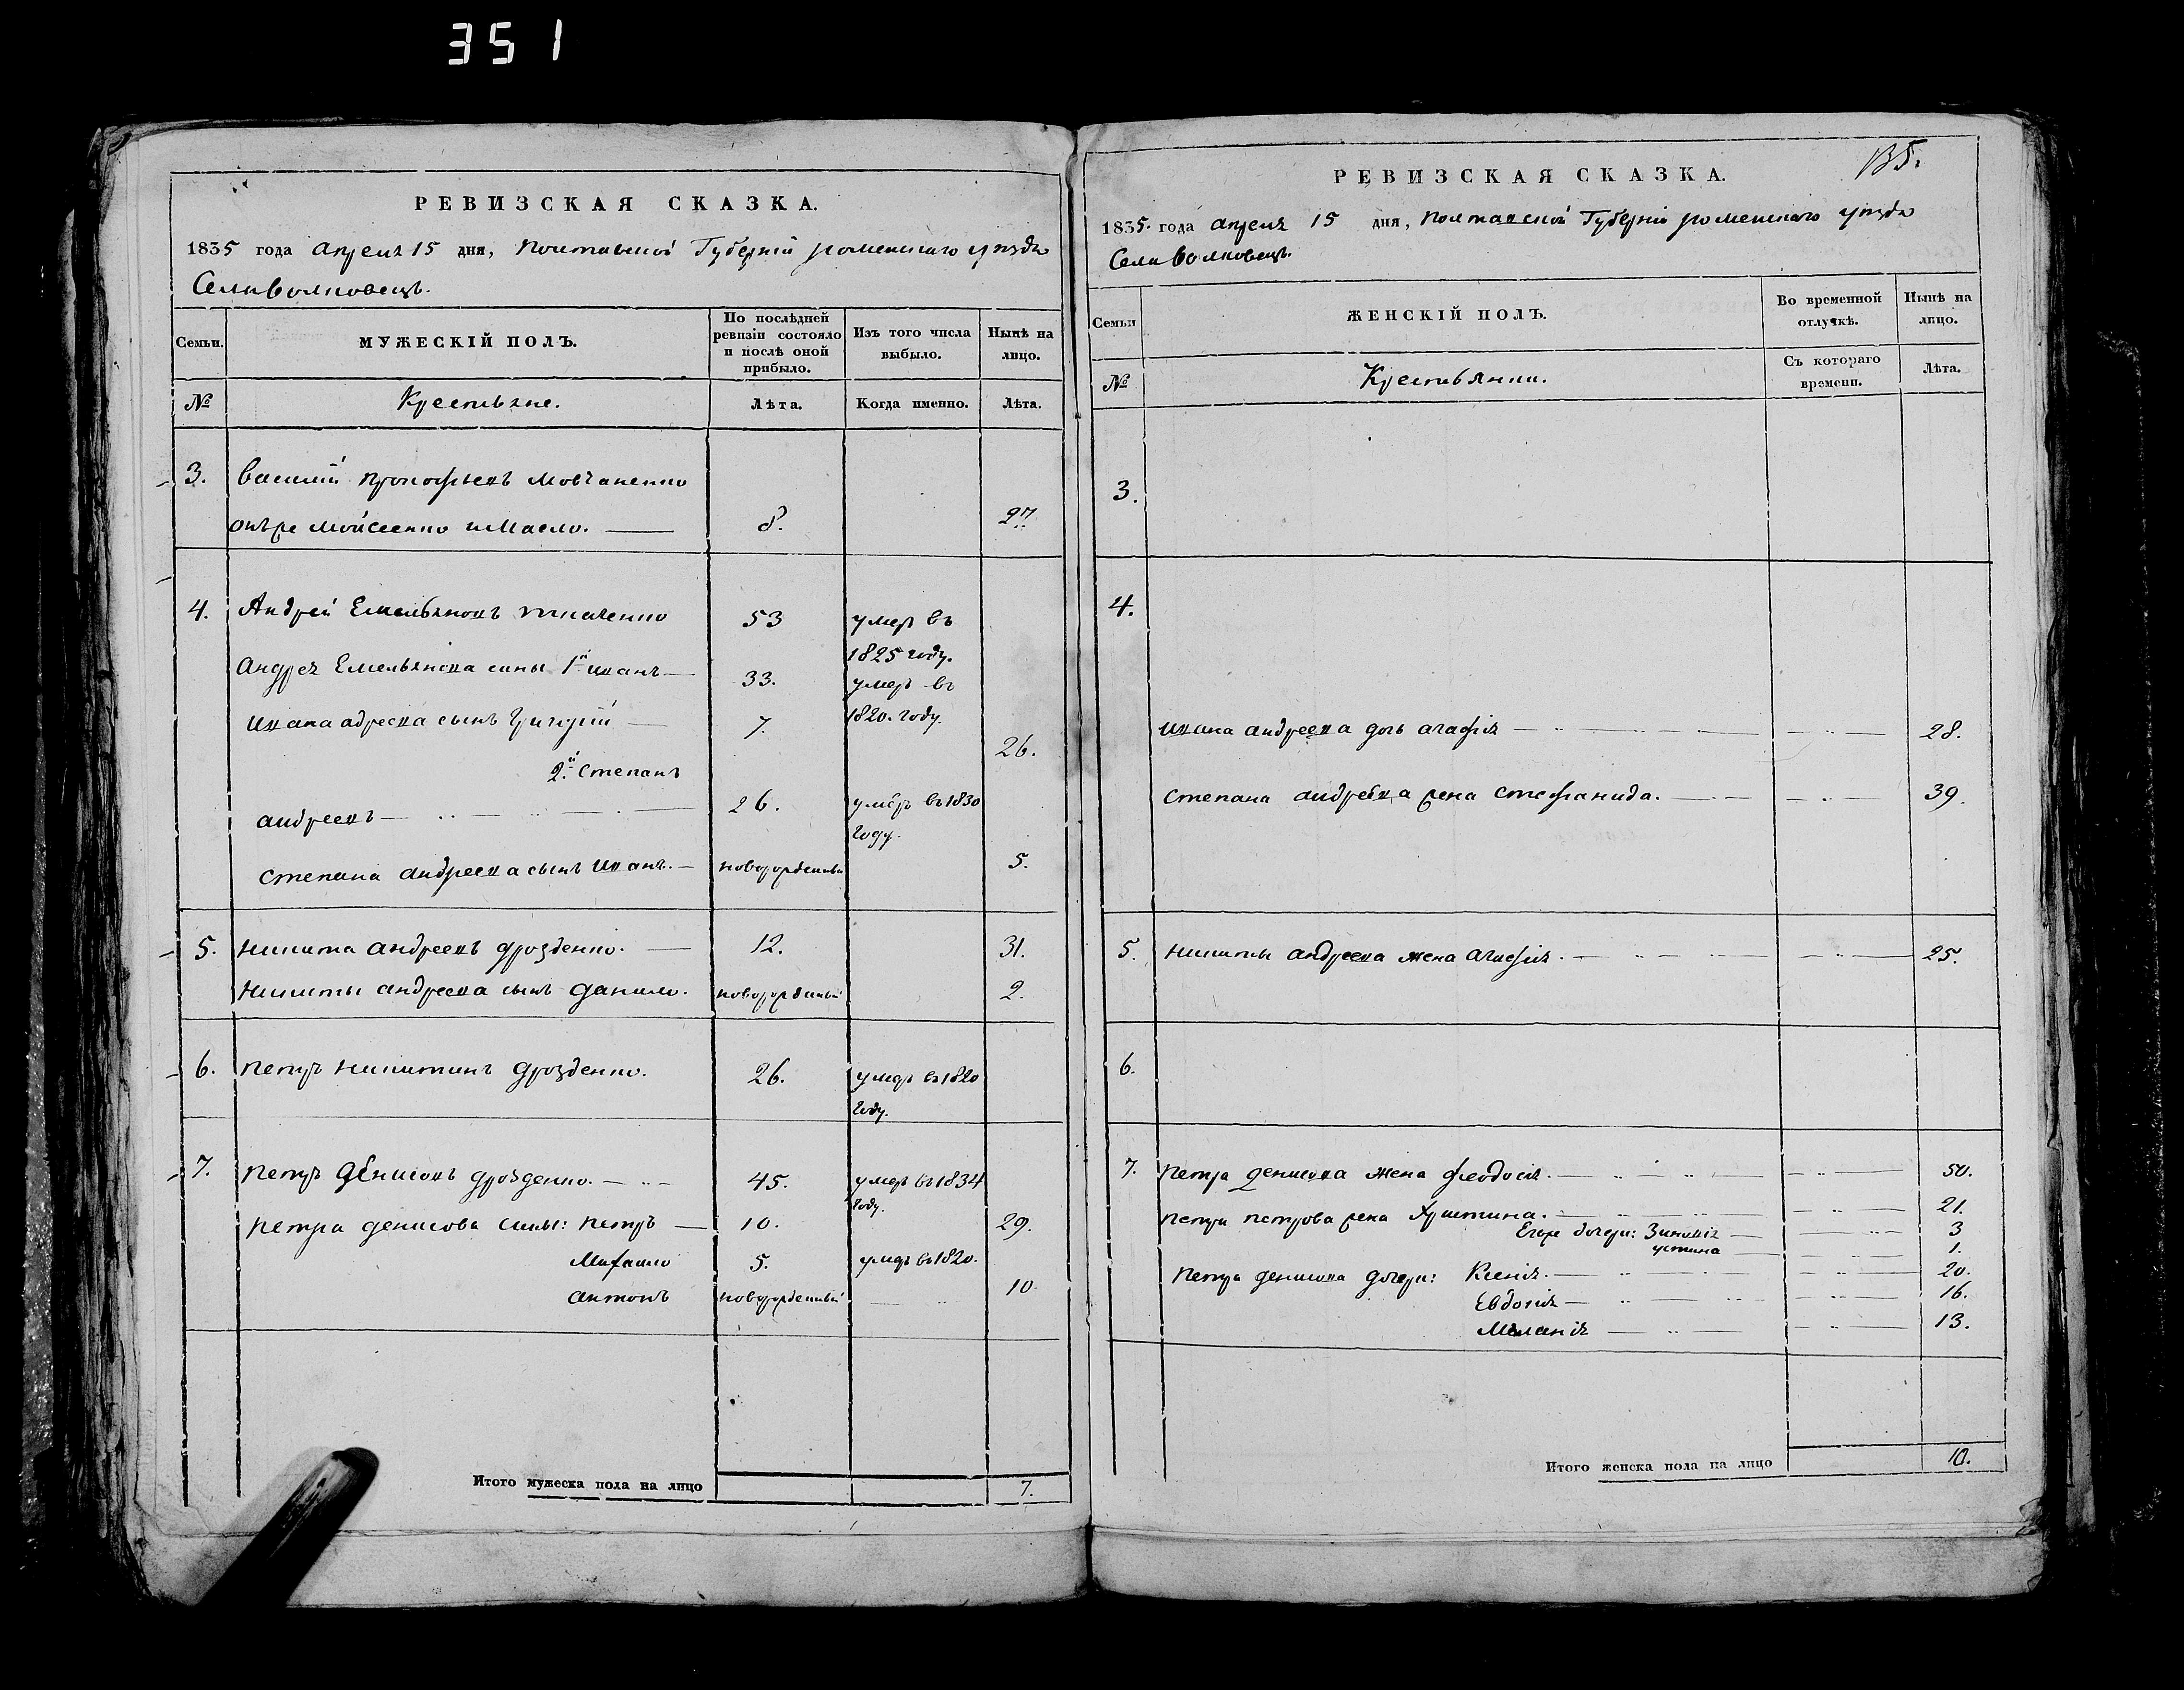 351
РЕВИЗСКАЯ СКАЗКА.
1835 года Апреля 15 дня, Полтавской Губерніи роменскаго уезда
Села Волковецъ.
Семьи.
МУЖЕСКІЙ ПОЛЪ.
По послѣдней ревизіи состояло и послѣ оной прибыло.
Изъ того числа выбыло.
Нынѣ на лицо.
№
Крестьяне.
Лѣта.
Когда именно.
Лѣта.
3. Василий прокофьевъ Мовчаненко
онъже Мойсеенко и Масло. 8. 27.
4. Андрей Емельяновъ ткаченко 53 умеръ въ
1825 году.
Андрея Емельянова сины 1й иванъ 33. умеръ въ
1820. году.
ивана адреева сынъ Григорій 7. 26.
2.й Степанъ
андреевъ 26. умеръ въ 1830
году.
Степана андреева сынъ иванъ. новорожденный 5.
5. никита андреевъ дрозденко. 12. 31.
никиты андреева сынъ данило. новорожденый 2.
6. петръ никитинъ дрозденко. 26. умеръ въ 1820
году.
7. петръ денисовъ дрозденко. 45. умеръ въ 1834
году.
петра денисова сины: петръ 10. 29.
Михайло 5. умеръ въ 1820.
антонъ новорожденный 10
Итого мужеска пола на лицо 7.
135.
РЕВИЗСКАЯ СКАЗКА.
1835. года апреля 15 дня, полтавской Губерніи роменскаго уезда
Села Волковецъ.
Семьи
ЖЕНСКІЙ ПОЛЪ.
Во временной отлучкѣ.
Нынѣ на лицо.
№
Крестьянки.
Съ котораго времени.
Лѣта.
3.
4.
ивана андреева дочь агафія 28.
степана андреева жена стефанида. 39.
5. никиты андреева жена агафія. 25.
6.
7. петра денисова жена феодосія. 50.
петра петрова жена Христина. 21.
Егоже дочери: Зиновія 3
устина 1.
петра денисова дочери: Ксенія. 20.
Евдокія 16.
Меланія 13.
Итого женска пола на лицо 10.